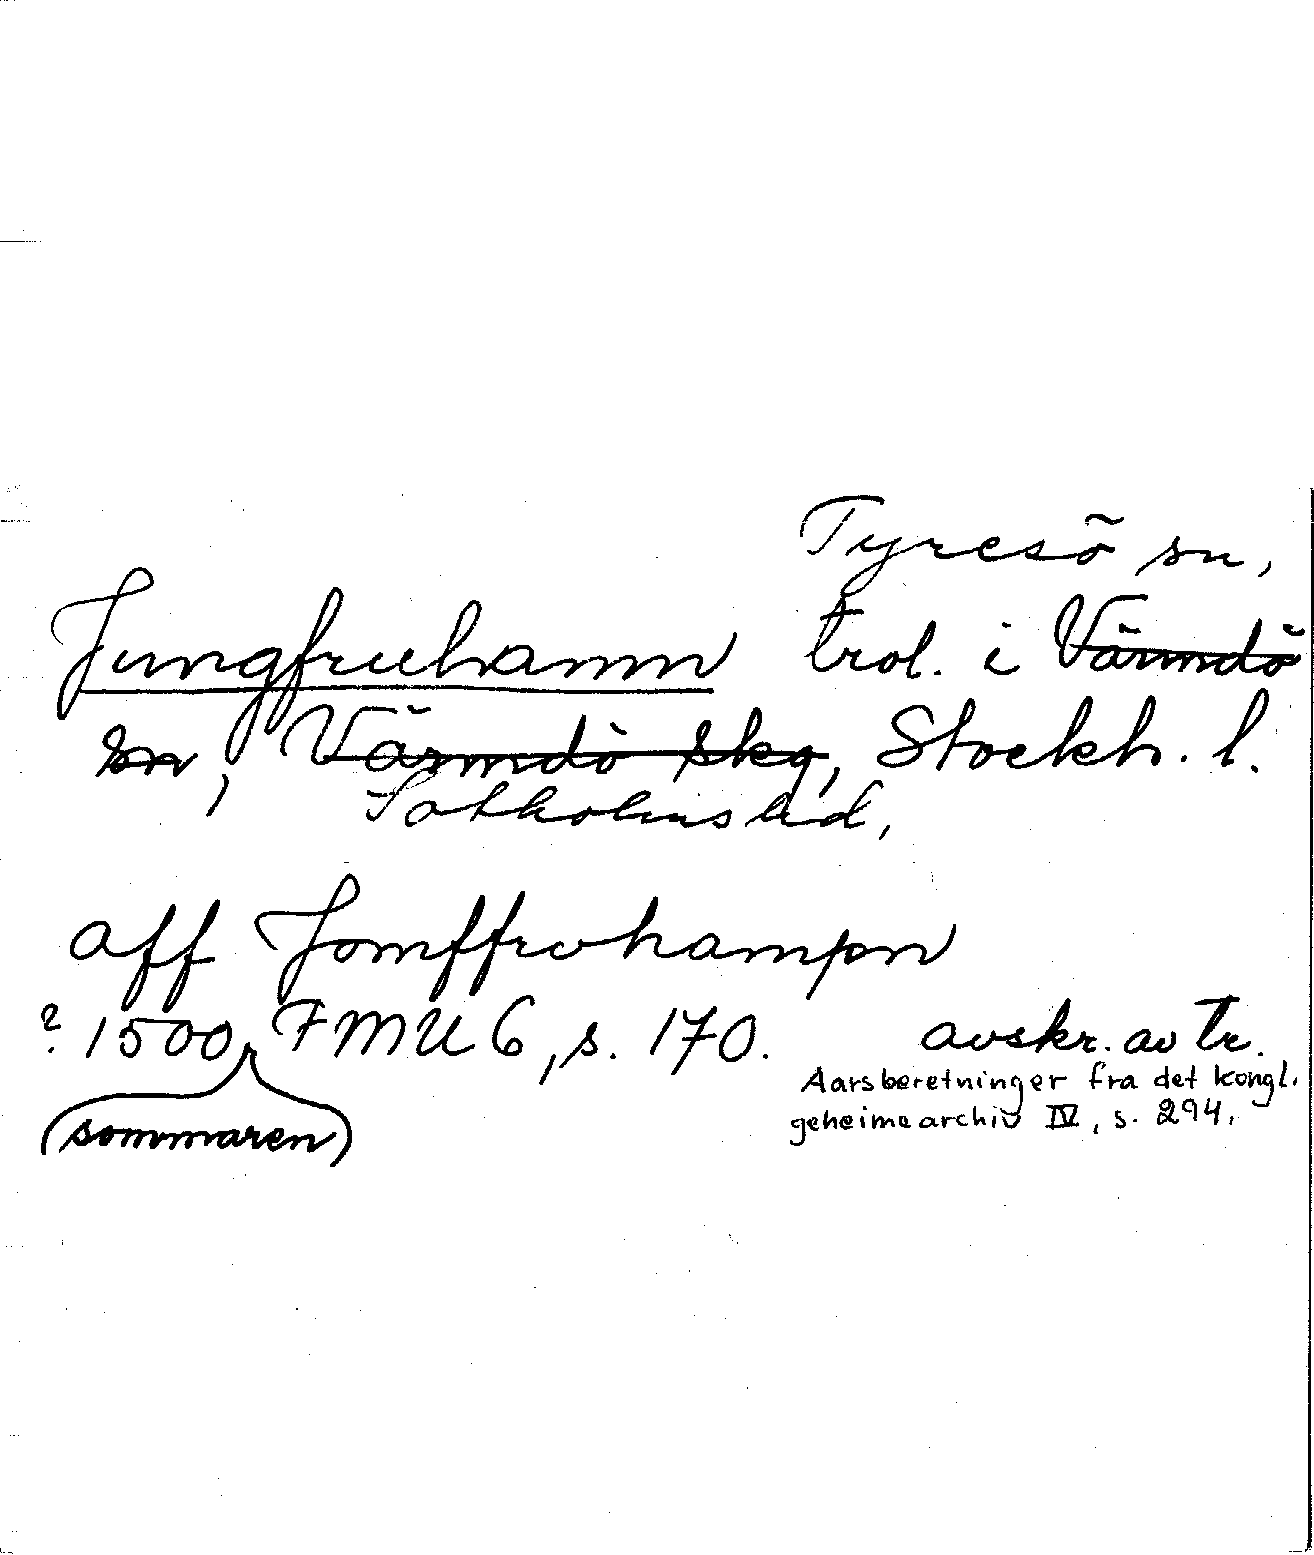 Tyresö sn,
Jungfruhamn trol. i Värmdö
sn, Värmdö skg, Stockh. l.
Sotholms hd,
aff Jomffrvhampn
? 1500, FMU 6, s. 170. avskr. av tr.
Aarsberetninger fra det kongl.
(sommaren) geheimearchiv IV, s. 294.